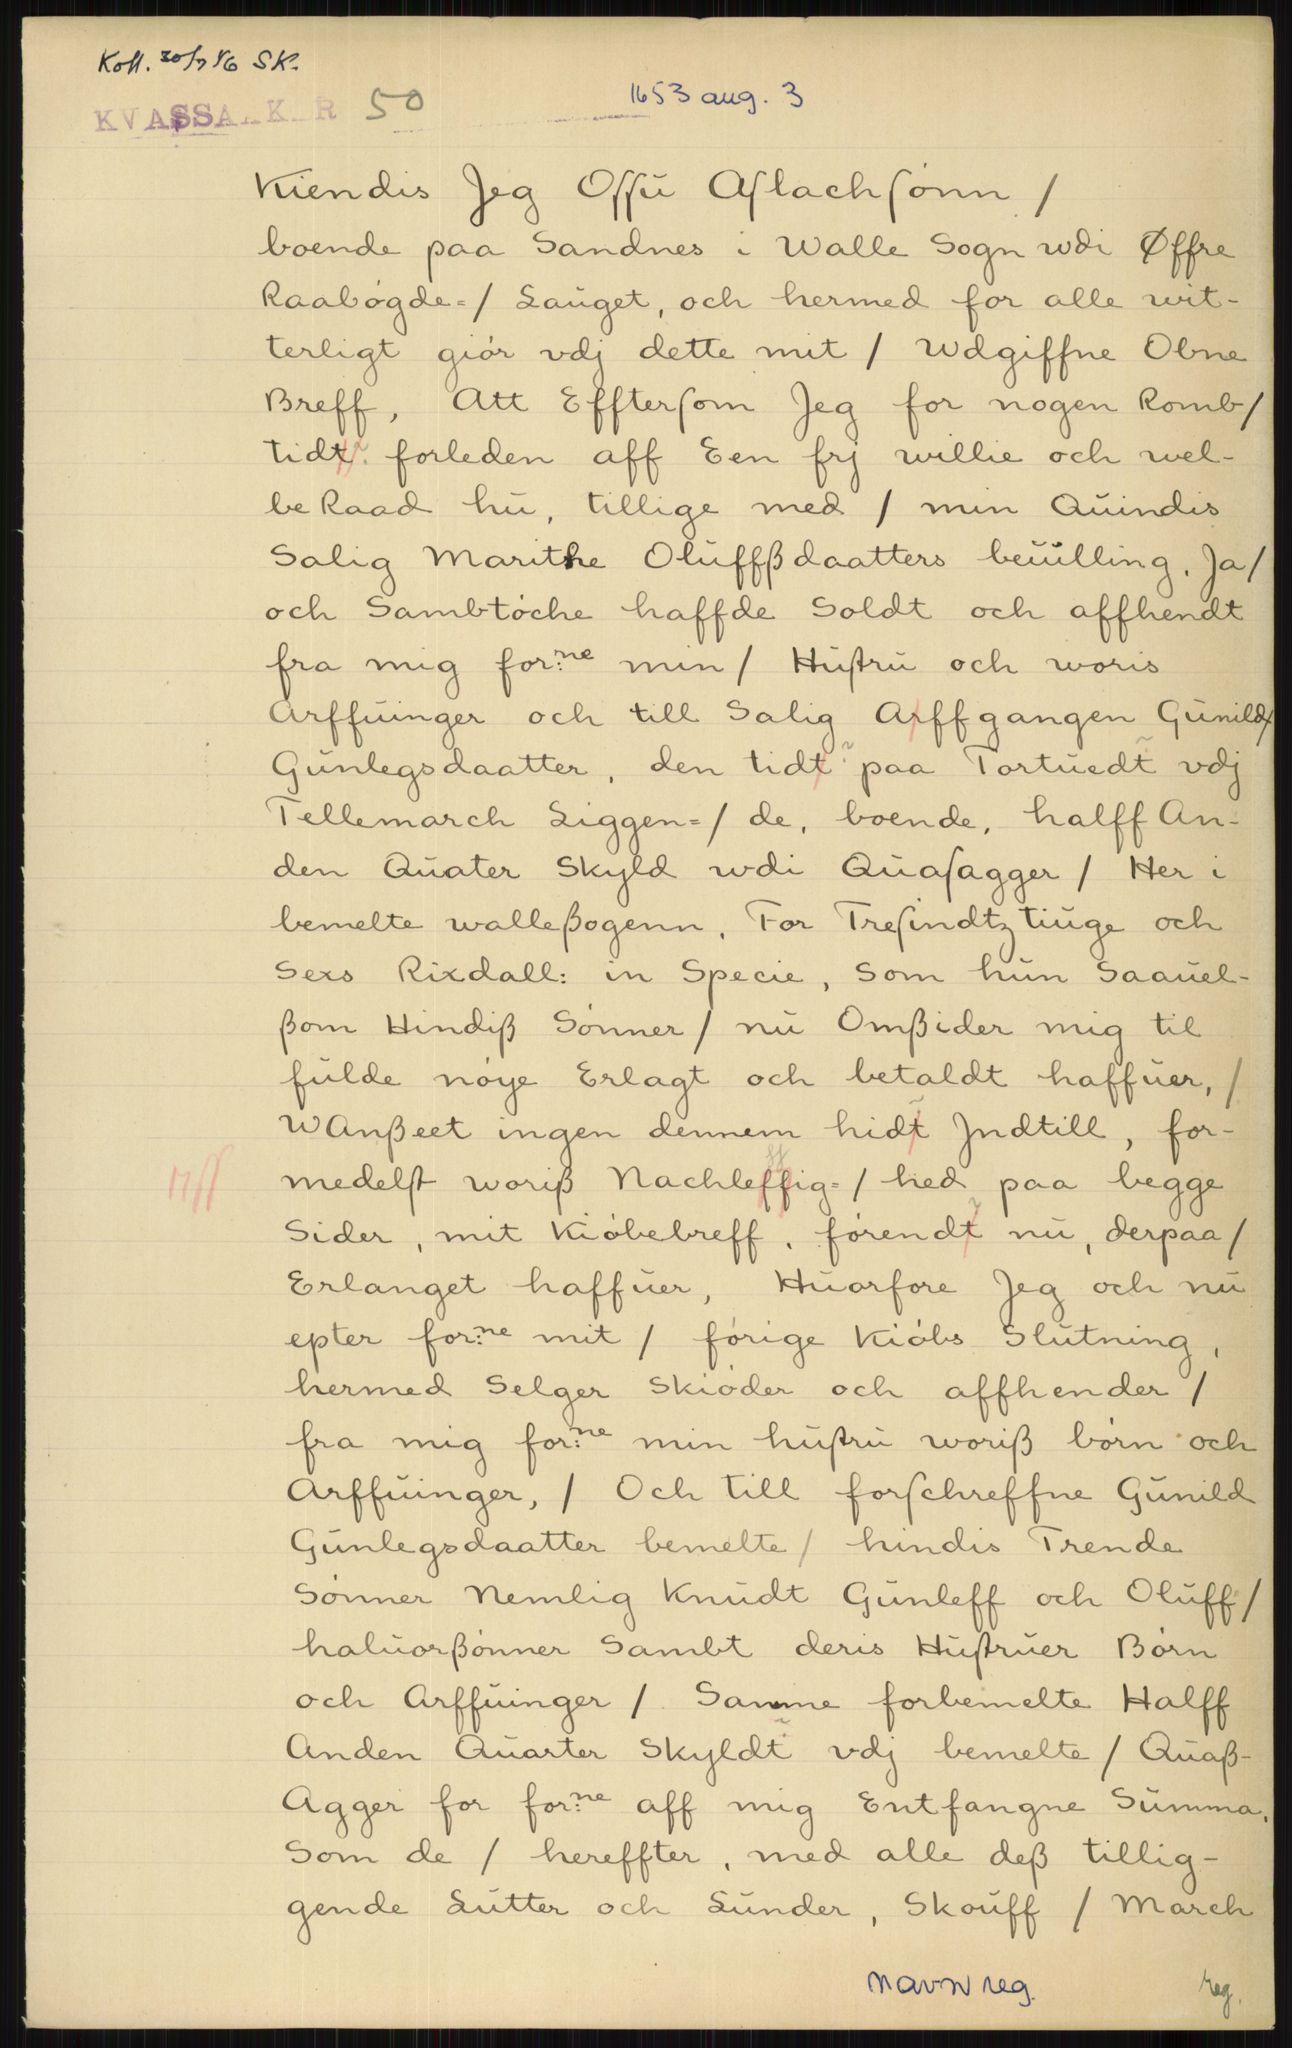 Koll. 30/7 56 SK.
KVASSAKER 50
1653 aug. 3
Kiendis Jeg Ossu Aslachsønn /
boende paa Sandnes i Walle Sogn wdi Øffre
Raabøgde= / Lauget, och hermed for alle wit-
terligt giør vdj dette mit / Wdgiffne Obne
Breff, Att Efftersom Jeg for nogen Romb /
tidt forleden aff Een frj willie och wel-
be Raad hu, tillige med / min Quindis
Salig Marithe Oluffßdaatters beuulling, Ja /
och Sambtøche haffde Soldt och affhendt
fra mig for:ne min / Hustru och woris
Arffuinger och till Salig Arffgangen Gunild /
Gunlegsdaatter, den tidt paa Tortuedt vdj
Tellemarch Liggen= / de, boende, halff An-
den Quater Skyld wdi Quasagger / Her i
bemelte walleßogenn, For Tresindtz tiuge och
Sexs Rixdall: in Specie, Som hun Saauel-
ßom Hindiß Sønner / nu Omßider mig til
fulde nøye Erlagt och betaldt haffuer, /
WAnßeet ingen dennem hidt Jndtill, for-
medelst woriß Nachleffig= / hed paa begge
Sider, mit Kiøbebreff, førendt nu, derpaa /
Erlanget haffuer, Huorfore Jeg och nu
epter for:ne mit / førige Kiøbs Slutning,
hermed Selger Skiøder och affhender /
fra mig for:ne min hustru woriß børn och
Arffuinger, / Och till forschreffne Gunild
Gunlegsdaatter bemelte / hindis Trende
Sønner Nemlig Knudt Gunleff och Oluff /
haluorßønner Sambt deris Hustruer Børn
och Arffuinger / Samme forbemelte Halff
Anden Quarter Skyldt vdj bemelte / Quaß-
Agger for for:ne aff mig Entfangne Summa,
Som de / hereffter, med alle deß tillig-
gende Lutter och Lunder, Skouff / March
navnreg.
reg.